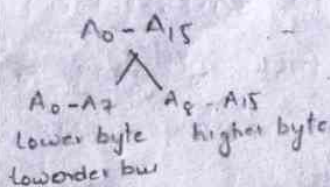 A0 - A15
A0-A7 A8 - A15
lower byte higher byte
lowerder bus